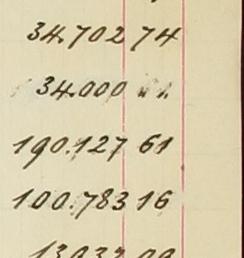 34.702 74
34.000
190.127 61
100.783 16